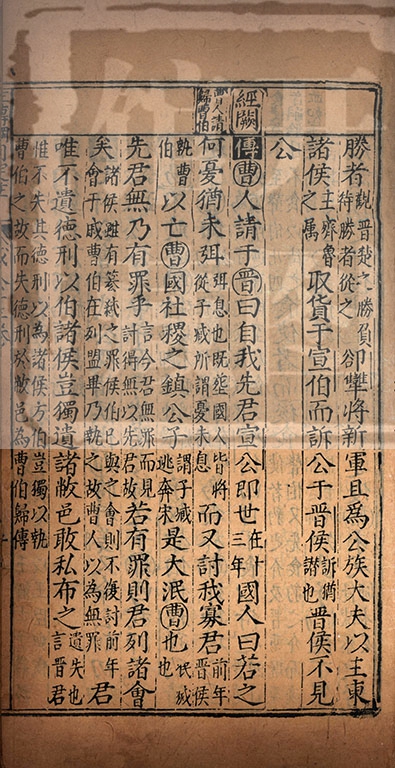 勝者觀晉楚之勝負待勝者從之卻犫將新軍且為公族大夫以主東
諸侯主齊魯之屬取貨于宣伯而訴公于晉侯訴猶譖也晉侯不見
公
經闕
曹人請歸曹伯
傳曹人請于晉曰自我先君宣公即世在十三年國人曰若之
何憂猶未弭弭息也既葬國人皆將從子臧所謂憂未息而又討我寡君前年晉侯
執曹伯以亡曹國社稷之鎮公子謂子臧逃奔宋是大泯曹也泯滅也
先君無乃有罪乎言今君無罪而見討得無以先君故若有罪則君列諸會
矣諸侯雖有篡弒之罪侯伯已與之會則不復討前年會于戚曹伯在列盟畢乃執之故曹人以為無罪君
唯不遺德刑以伯諸侯豈獨遺諸敝邑敢私布之遺失也言晉君
惟不失其德刑以為諸侯方伯豈獨以執曹伯之故而失德刑於敝邑為曹伯歸傳